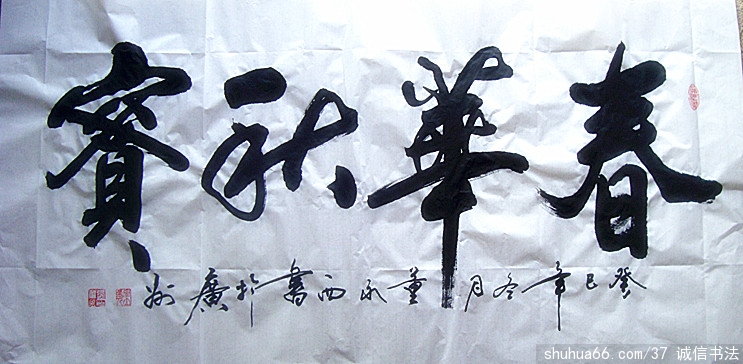 春華秋實
癸巳年冬月董永西書於廣州
shuhua66.com/37 诚信书法